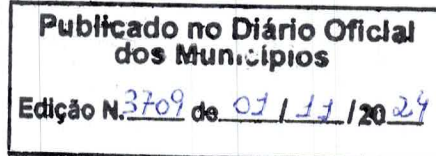 Publicado no Diário Oficial
dos Municípios
Edição N. 3709 de 01 / 11 / 20 24